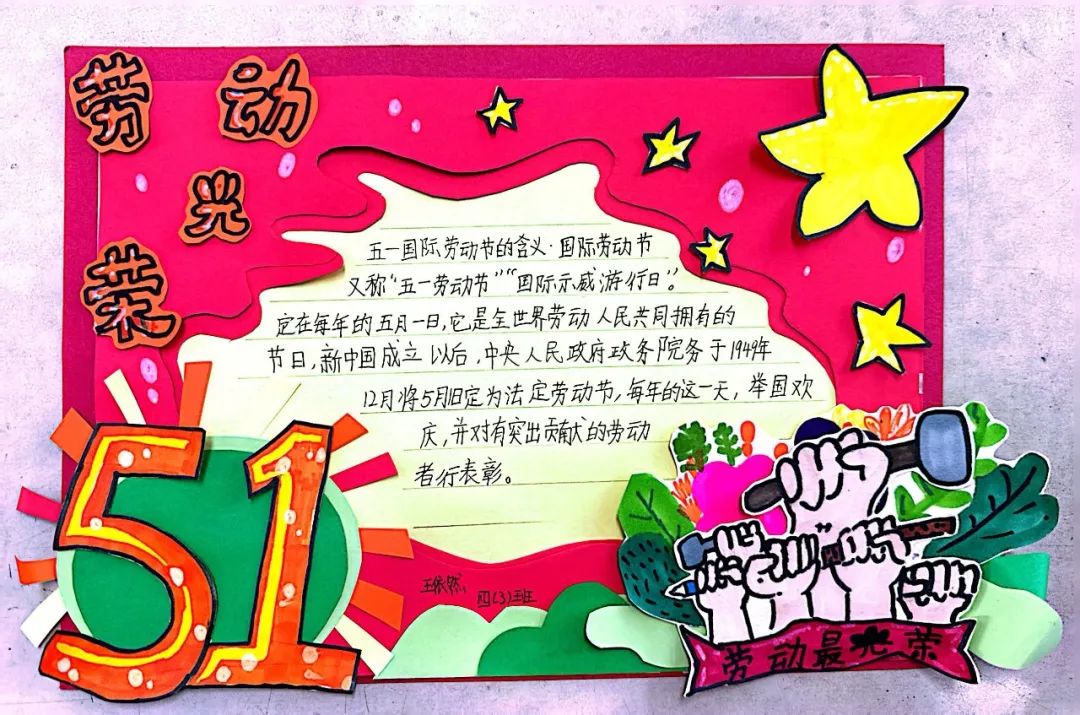 劳动
光
荣
五一国际劳动节的含义·国际劳动节
又称“五一劳动节”“国际示威游行日”。
定在每年的五月一日，它是全世界劳动人民共同拥有的
节日，新中国成立以后，中央人民政府政务院务于1949年
12月将5月1日定为法定劳动节，每年的这一天，举国欢
庆，并对有突出贡献的劳动
者行表彰。
51
王依然
四(3)班
劳动最光荣